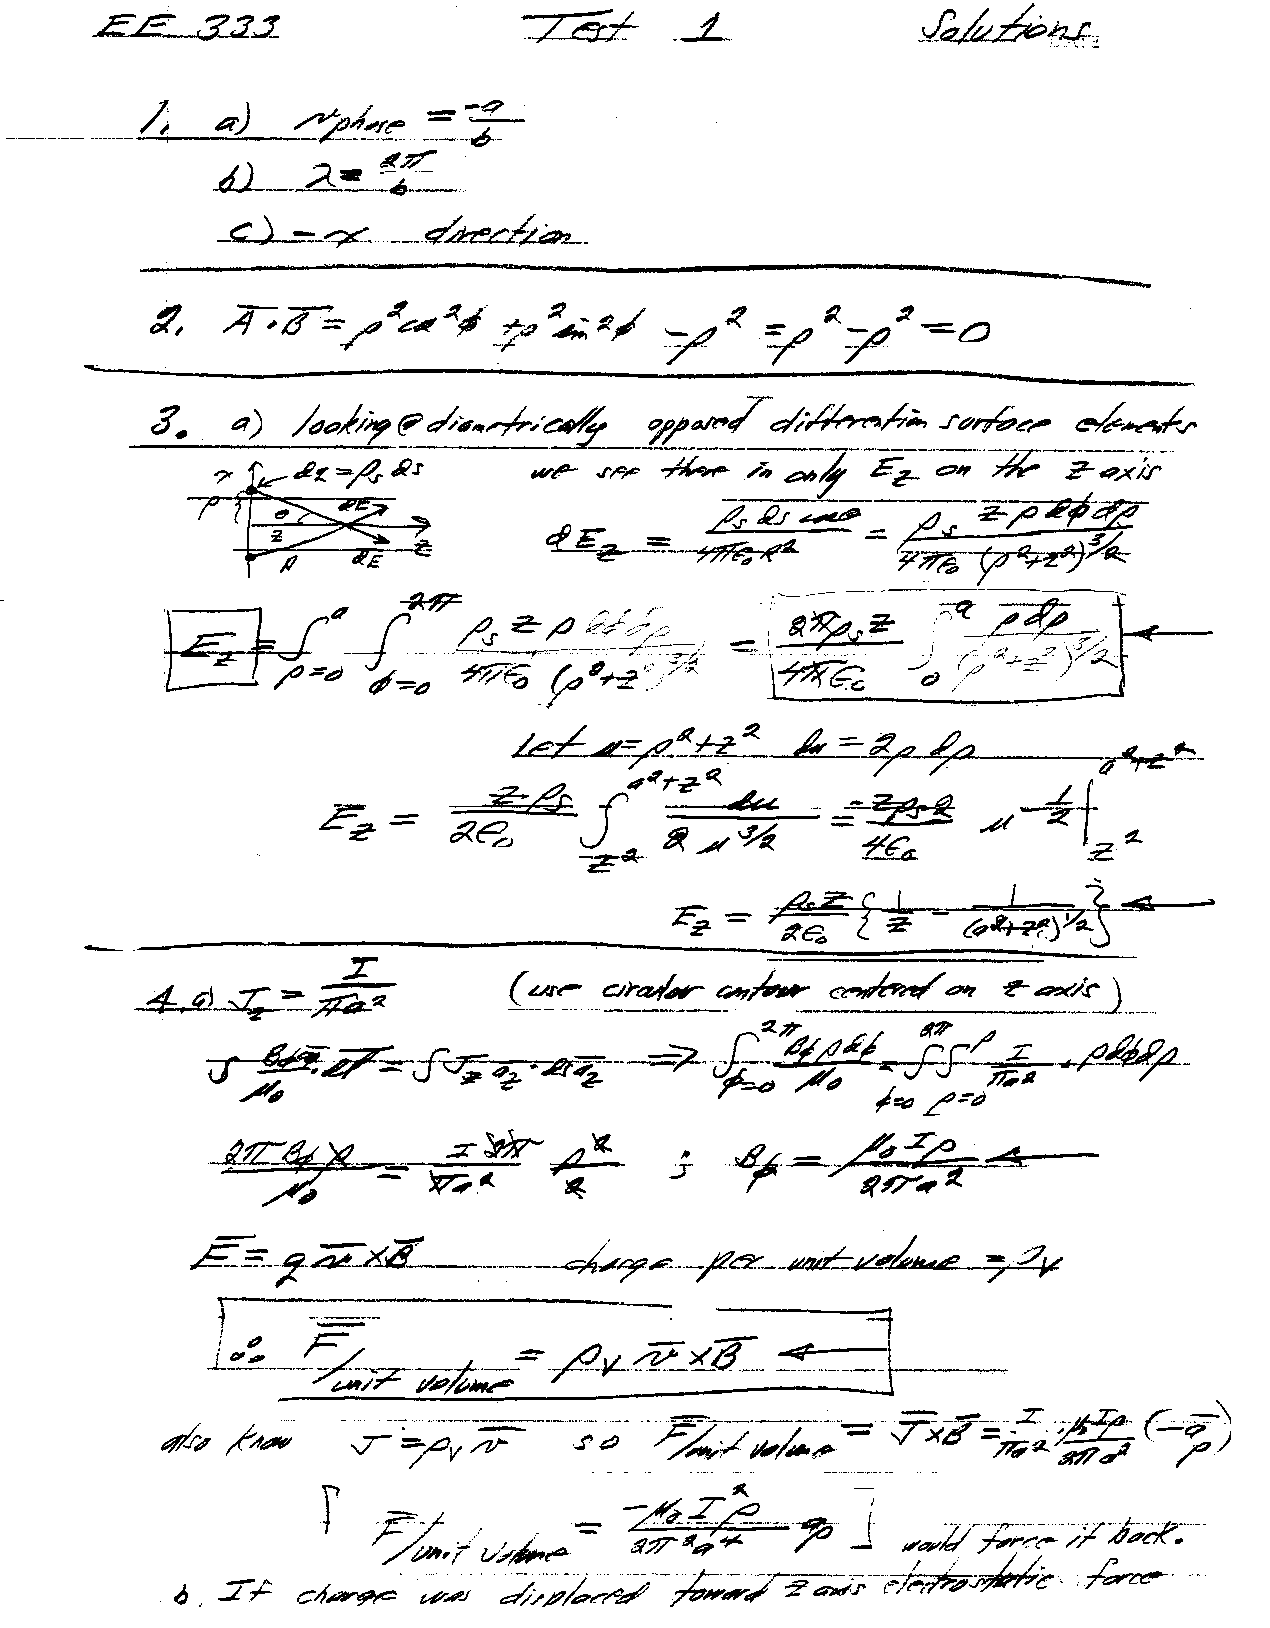 EE 333 Test 1 Solutions
1. a) v phase = -a/b
b) λ = 2π/b
c) -x direction
2. A̅·B̅ = ρ²cos²φ + ρ²sin²φ - ρ² = ρ² - ρ² = 0
3. a) looking @ diametrically opposed differential surface elements
x dq = ρs ds we see there is only Ez on the z axis
ρ θ dE z z R dE dEz = ρs ds cosθ / 4πε₀R² = ρs z ρ dφ dρ / 4πε₀ (ρ²+z²)^3/2
Ez = ∫ρ=0^a ∫φ=0^2π ρs z ρ dφ dρ / 4πε₀ (ρ²+z²)^3/2 = 2πρs z / 4πε₀ ∫0^a ρ dρ / (ρ²+z²)^3/2
Let u = ρ²+z² du = 2ρ dρ
Ez = zρs / 2ε₀ ∫z²^a²+z² du / 2 u^3/2 = -zρs2 / 4ε₀ u^-1/2 |z²^a²+z²
Ez = ρs z / 2ε₀ { 1/z - 1/(a²+z²)^1/2 }
4. a) Jz = I/πa² (use circular contour centered on z axis)
∫ Bφ a̅φ/μ₀ · dl̅ = ∫ Jz a̅z · ds a̅z ⇒ ∫φ=0^2π Bφ ρ dφ / μ₀ = ∫φ=0^2π ∫ρ=0^ρ I/πa² · ρ dφ dρ
2π Bφ ρ / μ₀ = I 2π / πa² ρ²/2 ; Bφ = μ₀ I ρ / 2πa²
F̅ = q v̅ × B̅ charge per unit volume = ρv
∴ F̅/unit volume = ρv v̅ × B̅
also know J̅ = ρv v̅ so F̅/unit volume = J̅ × B̅ = I/πa² · μ₀Iρ/2πa² (-a̅ρ)
[ F̅/unit volume = -μ₀I²ρ / 2π²a⁴ a̅ρ ] would force it back.
b. If charge was displaced toward z axis electrostatic force